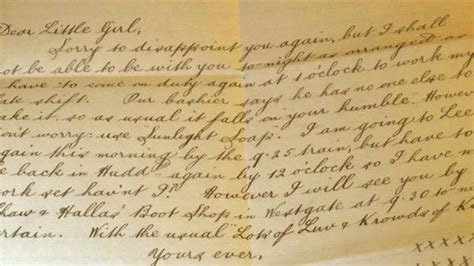 Dear Little Girl,
Sorry to disappoint you again, but I shall
not be able to be with you to-night as arranged as
have to come on duty again at 1 o'clock to work my
ate shift. Our "bashier" says he has no one else to
ake it, so as usual it falls on "your humble". However
on't worry: use Sunlight Soap. I am going to Lee
gain this morning by the 9.25 train, but have to
e back in "Hudd" again by 12 o'clock so I have my
ork set hav'nt I? However I will see you by
haw & Hallas' Boot Shop in Westgate at 9.30 to-n
ertain. With the usual "Lots of Luv & Krowds of K
Yours ever,
xxxxx
xxx